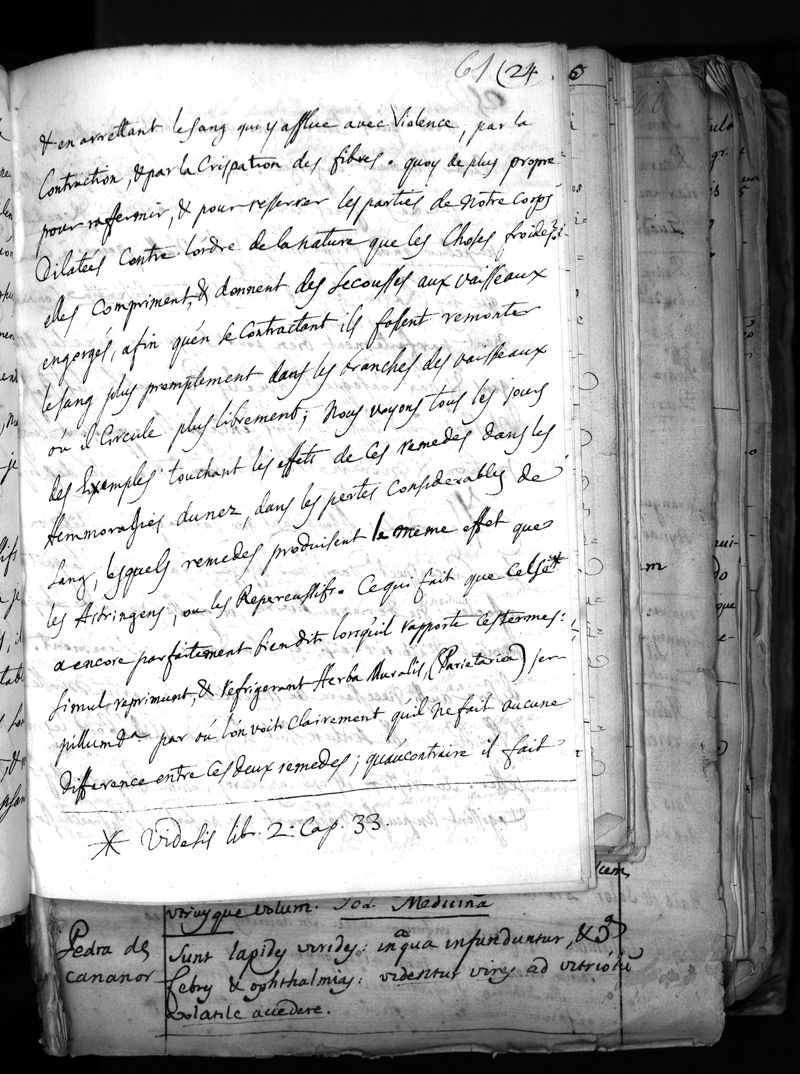 61 (24.
& en arrettant le sang qui y afflue avec Violence, par la
Contraction, & par la Crispation des fibres. quoy de plus propre
pour raffermir, & pour resserrer les parties de notre Corps
Dilatées Contre l'ordre de la nature que les Choses froides?
elles Compriment, & donnent des secousses aux vaisseaux
engorgés, afin qu'en se Contractant ils fassent remonter
le sang plus promptement dans les branches des vaisseaux
où il Circule plus librement; Nous voyons tous les jours
des Exemples touchant les effets de Ces remedes dans les
hemmorahgies du nez, dans les pertes Considerables de
sang, lesquels remedes produisent le meme effet que
les Astringens, ou les Repercussifs. Ce qui fait que Celse*
a encore parfaitement bien dit lorsqu'il rapporte Ces termes:
Simul reprimunt, & refrigerant Herba Muralis, (Parietaria) ser-
pillum &a. par où l'on voit Clairement qu'il ne fait aucune
difference entre Ces deux remedes; qu'au contraire il fait
* Videsis libr. 2. Cap. 33.
utriusque volum. Ico. Medicinā
Pedra de Sunt lapides virides: in aqua infunduntur, &
Cananor febry & ophthalmiis: videntur vires ad vitriolū
volatile accedere.